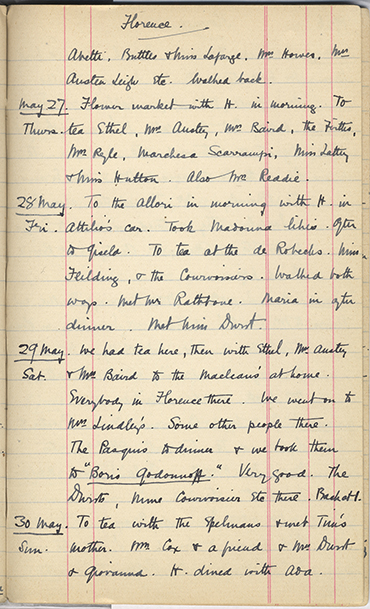 Florence.
Abetti, Buttles & Miss Lafarge, Mrs Howes, Mrs
Austen Leigh etc. Walked back.
May 27. Flower market with H. in morning. To
Thurs. tea Ethel, Mrs Austey, Mrs Baird, the
Mrs Ryle, Marchesa Scarrampi, Miss
& Miss Hutton. Also Mrs Readie.
28 May. To the Allori in morning with H. in
Fri. Attilio's car. Took Madonna lilies. After
to Gisela. To tea at the de Robecks. Miss
Feilding, & the Courvoisiers. Walked both
ways. Met Mrs Rathbone. Maria in after
dinner. Met Miss Durst.
29 May. We had tea here, then with Ethel, Mrs Austey
Sat. & Mrs Baird to the Macleans' at home.
Everybody in Florence there. We went on to
Mrs Lindley's. Some other people there.
The Pasquis to dinner & we took them
to "Boris Godounoff." Very good. The
Dursts, Mme Courvoisier etc there. Bed at 1.
30 May. To tea with the Spelmans & met Tim's
Sun. mother. Mrs Cox & a friend & Mrs Durst
& Giovanna. H. dined with Ada.